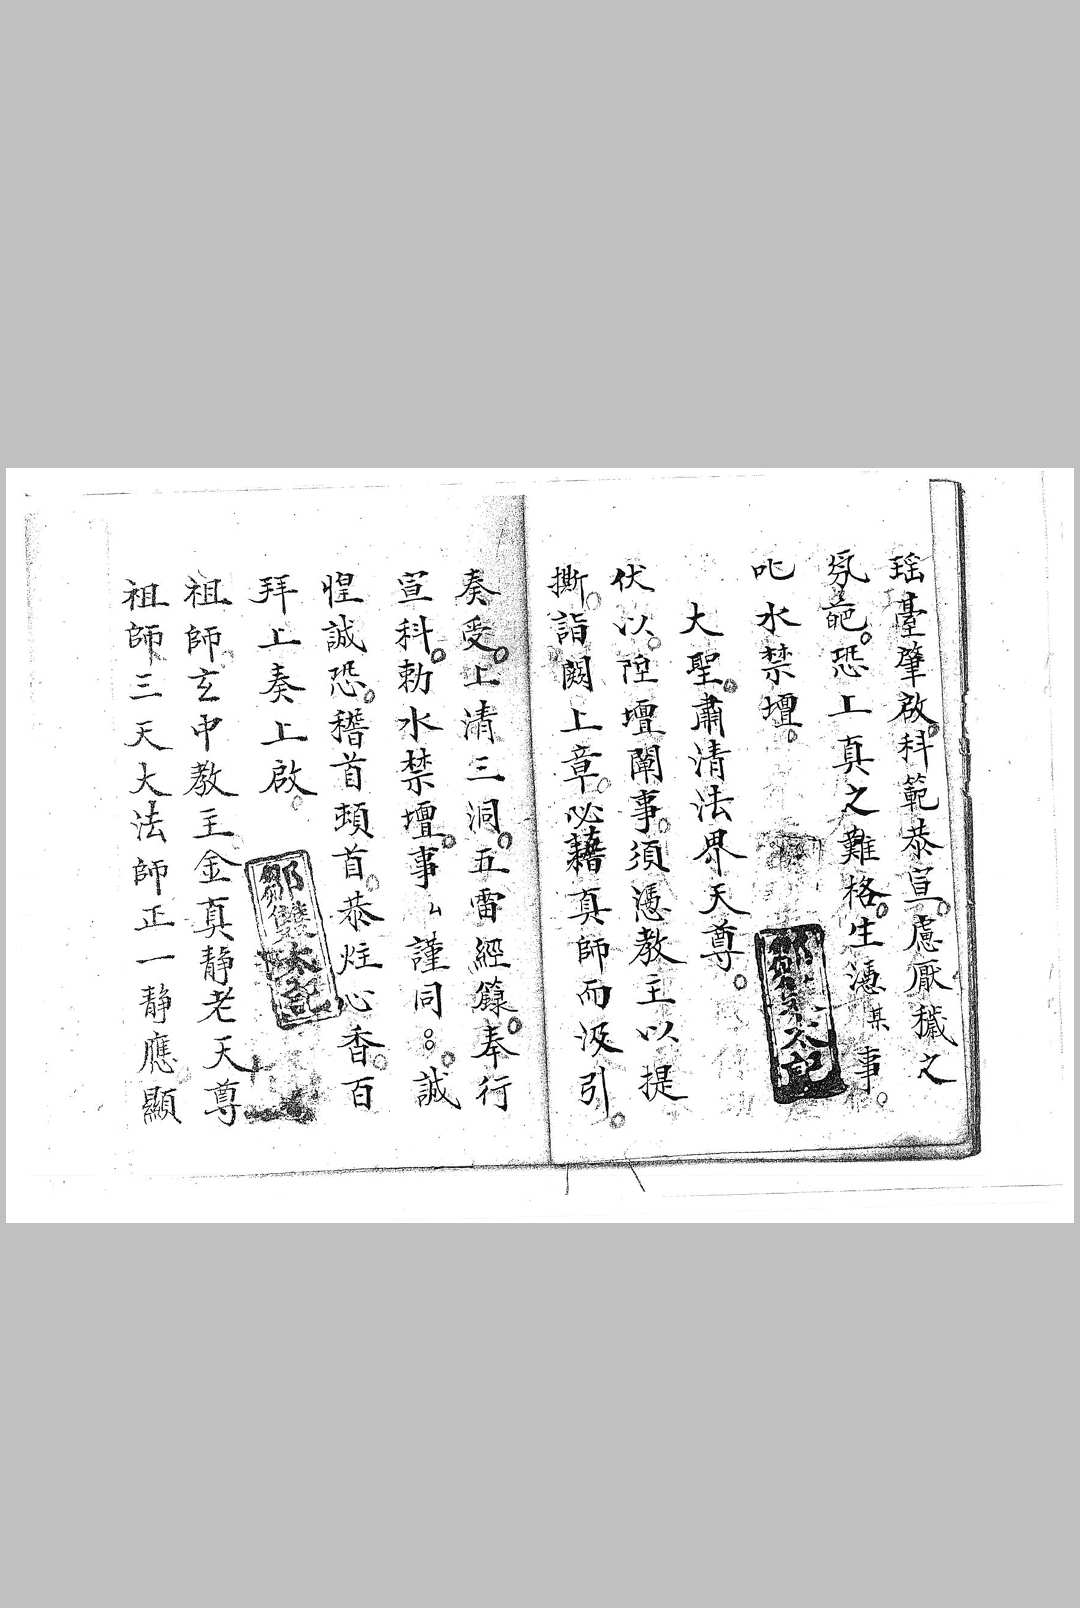 瑶臺肇啟。科範恭宣。慮厭穢之
氛葩。恐上真之難格。生憑某事。
叱水禁壇。
大聖。肅清法界天尊。
伏以。陞壇闡事。須憑教主以提
撕。詣闕上章。必藉真師而汲引。
奏受。上清三洞。五雷經籙。奉行
宣科。勅水禁壇。事厶謹同:。誠
惶誠恐。稽首頓首。恭炷心香。百
拜上奏上啟。
祖師玄中教主金真靜老天尊
祖師三天大法師正一靜應顯
鄒雙太記
鄒雙太記